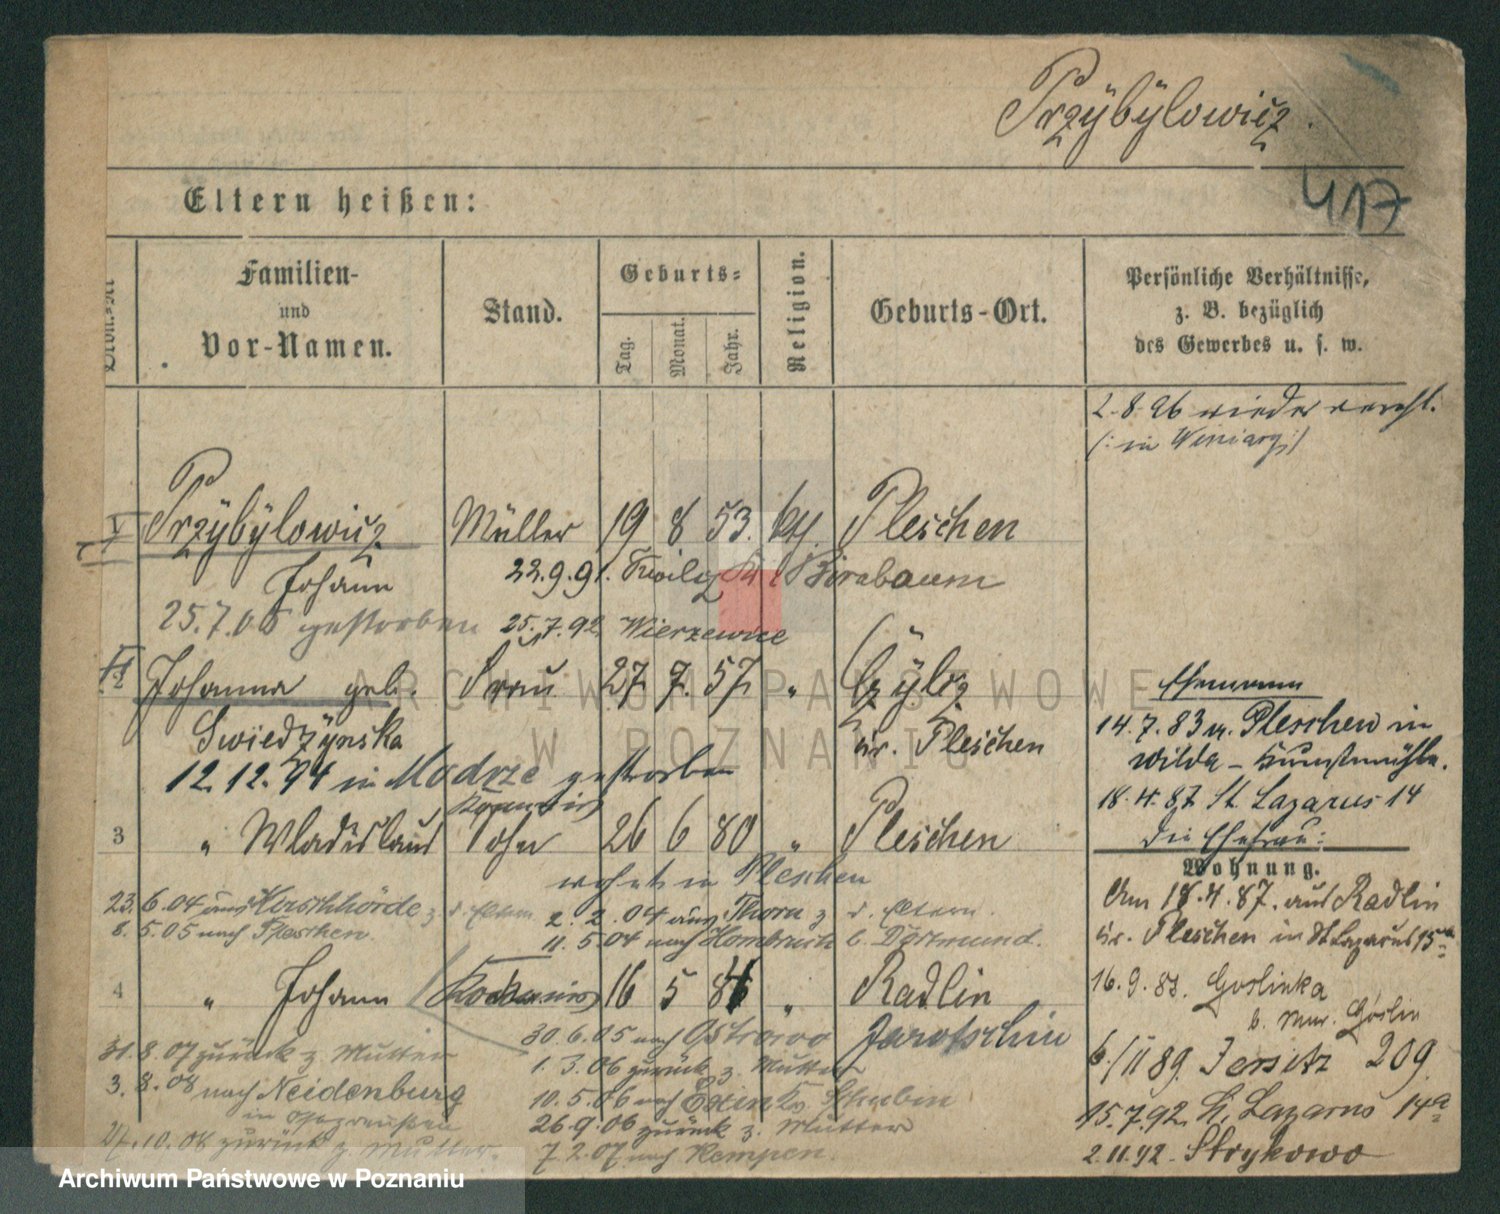 Przÿbÿlowicz.
417
Eltern heißen:
Familien-
und
Vor-Namen.
Stand.
Geburts-
Tag.
Monat.
Jahr.
Religion.
Geburts-Ort.
Persönliche Verhältnisse,
z. B. bezüglich
des Gewerbes u. s. w.
2.8.96 wieder vereh.
(: in Winiary :)
Przÿbÿlowicz Müller 19 8 53. kth. Pleschen
Johann 22.9.91. Kr. Birnbaum
25.7.05 gestorben 25.7.92 Wierzewice
Johanna geb. Frau 27 7. 57 "
Swiedzÿnska Kr. Pleschen
12.12.94 in Modrze gestorben
3 " Wladislaus Sohn 26 6 80 " Pleschen
wohnt in Pleschen
23.6.04 aus z. d. Eltern 2.2.04 aus Thorn z. d. Eltern.
8.5.05 nach Pleschen. 11.5.04 nach Hombruch b. Dortmund.
4 " Johann 16 5 86 " Radlin
30.6.05 nach Ostrowo Jarotschin
31.8.07 zurück z. Mutter 1.3.06 zurück z. Mutter
3.8.08 nach Neidenburg 10.5.06 nach Exin Kr. Schubin
in Ostpreußen 26.9.06 zurück z. Mutter
27.10.08 zurück z. Mutter. 7.2.07 nach Kempen.
Ehemann
14.7.83 v. Pleschen in
Wilda - Kunstmühle.
18.4.87 St. Lazarus 14
Die Ehefrau:
Wohnung.
Am 18.4.87. aus Radlin
Kr. Pleschen in St Lazarus 15a
16.9.83. Goslinka
b. Mur. Goslin
6/11 89. Jersitz 209
15.7.92. St. Lazarus 14a
2.11.92. Strykowo
ARCHIWUM PAŃSTWOWE
W POZNANIU
Archiwum Państwowe w Poznaniu